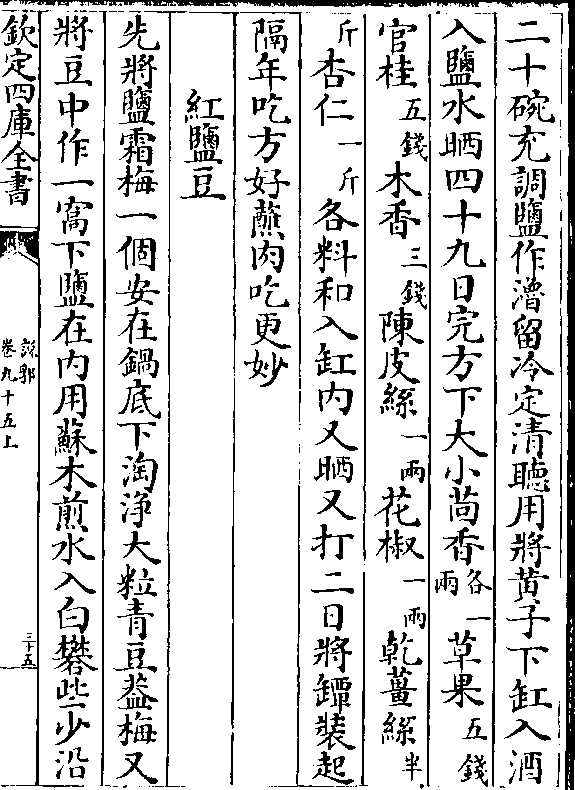 二十碗充調鹽作滷留冷定清聴用將黄子下缸入酒
入鹽水晒四十九日完方下大小茴香各一兩草果五錢
官桂五錢木香三錢陳皮絲一兩花椒一兩乾薑絲半
斤杏仁一斤各料和入缸内又晒又打二日將罈装起
隔年吃方好蘸肉吃更妙
紅鹽豆
先將鹽霜梅一個安在鍋底下淘浄大粒青豆葢梅又
將豆中作一窩下鹽在内用蘇木煎水入白礬些少沿
欽定四庫全書
說郛
卷九十五上
三十五